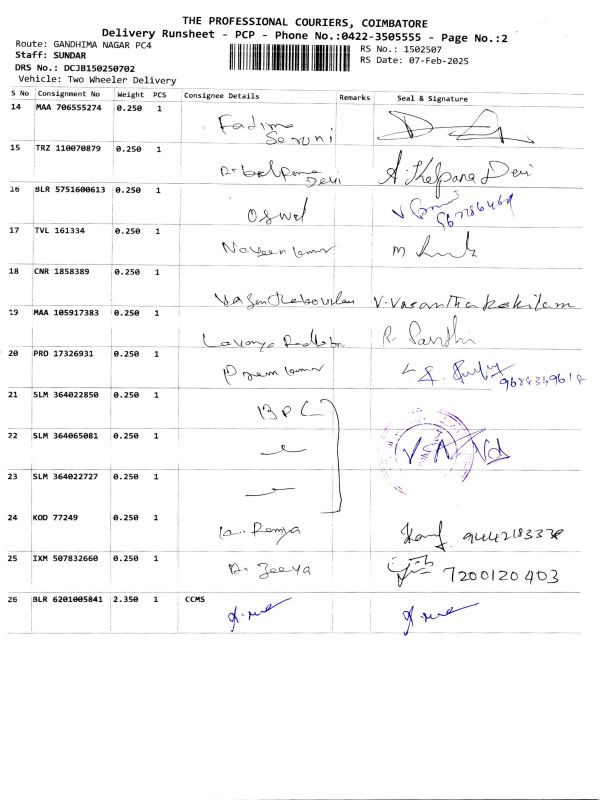 THE PROFESSIONAL COURIERS, COIMBATORE
Delivery Runsheet - PCP - Phone No.:0422-3505555 - Page No.:2
Route: GANDHIMA NAGAR PC4
Staff: SUNDAR
DRS No.: DCJB150250702
Vehicle: Two Wheeler Delivery
RS No.: 1502507
RS Date: 07-Feb-2025
S No Consignment No Weight PCS Consignee Details Remarks Seal & Signature
14 MAA 706555274 0.250 1 Fadima
15 TRZ 110070879 0.250 1 Devi A. Kalpana Devi
16 BLR 5751600613 0.250 1 Oswal
17 TVL 161334 0.250 1 Naveen kumar M
18 CNR 1858389 0.250 1 Vasanthakokilam V. Vasanthakokilam
19 MAA 105917383 0.250 1 Lavanya R. Santhi
20 PRO 17326931 0.250 1 Prem kumar
21 SLM 364022850 0.250 1 BPC
22 SLM 364065081 0.250 1
23 SLM 364022727 0.250 1
24 KOD 77249 0.250 1 K. Ramya
25 IXM 507832660 0.250 1 A. Jeeva 7200120403
26 BLR 6201005841 2.350 1 CCMS